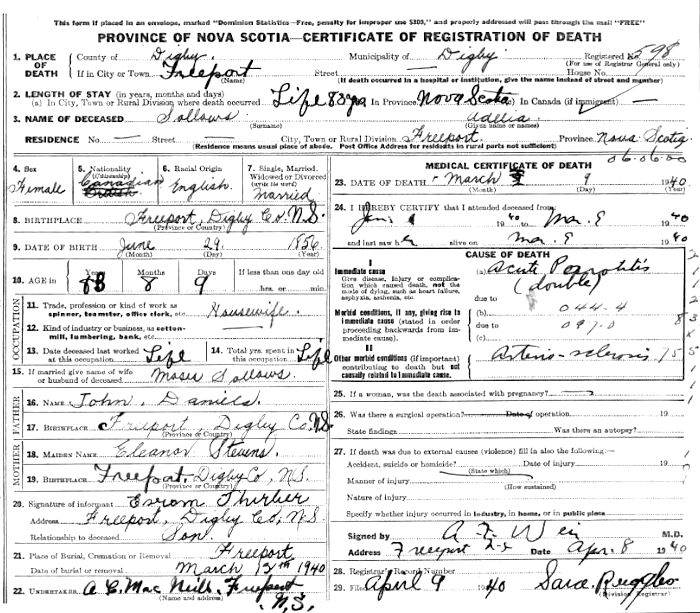 This form if placed in an envelope, marked "Dominion Statistics—Free, penalty for improper use $300," and properly addressed will pass through the mail "FREE"
PROVINCE OF NOVA SCOTIA—CERTIFICATE OF REGISTRATION OF DEATH
1. PLACE OF DEATH County of Digby Municipality of Digby Registered No. 598
(For use of Registrar General only)
If in City or Town Freeport Street House No.
(Name) (If death occurred in a hospital or institution, give the name instead of street and number)
2. LENGTH OF STAY (in years, months and days)
(a) In City, Town or Rural Division where death occurred Life 83 yrs In Province Nova Scotia In Canada (if immigrant) —
3. NAME OF DECEASED Sollows Adelia
(Surname) (Given name or names)
RESIDENCE No. — Street — City, Town or Rural Division Freeport Province Nova Scotia
(Residence means usual place of abode. Post Office Address for residents in rural parts not sufficient)
06.06.00
4. Sex Female
5. Nationality (Citizenship) Canadian British
6. Racial Origin English
7. Single, Married, Widowed or Divorced (write the word) Married
8. BIRTHPLACE Freeport, Digby Co. N.S.
(Province or Country)
9. DATE OF BIRTH June 29 1856
(Month) (Day) (Year)
10. AGE in Years 83 Months 8 Days 9 If less than one day
hrs. or min.
OCCUPATION
11. Trade, profession or kind of work as spinner, teamster, office clerk, etc. Housewife
12. Kind of industry or business, as cotton-mill, lumbering, bank, etc.
13. Date deceased last worked at this occupation Life 14. Total yrs. spent in this occupation Life
15. If married give name of wife or husband of deceased Moses Sollows
FATHER
16. NAME John Daniels
17. BIRTHPLACE Freeport, Digby Co. N.S.
(Province or Country)
MOTHER
18. MAIDEN NAME Eleanor Stevens
19. BIRTHPLACE Freeport, Digby Co, N.S.
(Province or Country)
20. Signature of informant Esrom Thurber
Address Freeport, Digby Co, N.S.
Relationship to deceased Son
21. Place of Burial, Cremation or Removal Freeport
Date of burial or removal March 12th 1940
22. UNDERTAKER A C. Mac Neill, Freeport N.S.
(Name and address)
MEDICAL CERTIFICATE OF DEATH
23. DATE OF DEATH March 9 1940
(Month) (Day) (Year)
24. I HEREBY CERTIFY that I attended deceased from:
40 to 1940
and last saw h alive on 1940
CAUSE OF DEATH
I
Immediate cause
Give disease, injury or complication which caused death, not the mode of dying, such as heart failure, asphyxia, asthenia, etc.
(a) Acute Parotitis (double)
due to
Morbid conditions, if any, giving rise to immediate cause (stated in order proceeding backwards from immediate cause).
(b) 044.4
due to 097.0
(c)
II
Other morbid conditions (if important) contributing to death but not causally related to immediate cause.
Arterio-sclerosis
25. If a woman, was the death associated with pregnancy?
26. Was there a surgical operation? Date of operation 19
State findings Was there an autopsy?
27. If death was due to external causes (violence) fill in also the following:—
Accident, suicide or homicide? Date of injury 19
(State which)
Manner of injury
(How sustained)
Nature of injury
Specify whether injury occurred in industry, in home, or in public place
Signed by A. F. Weir M.D.
Address Freeport N.S. Date Apr. 8 1940
28. Registrar's Record Number
29. Filed April 9 1940 Sara Ruggles
(Division Registrar)